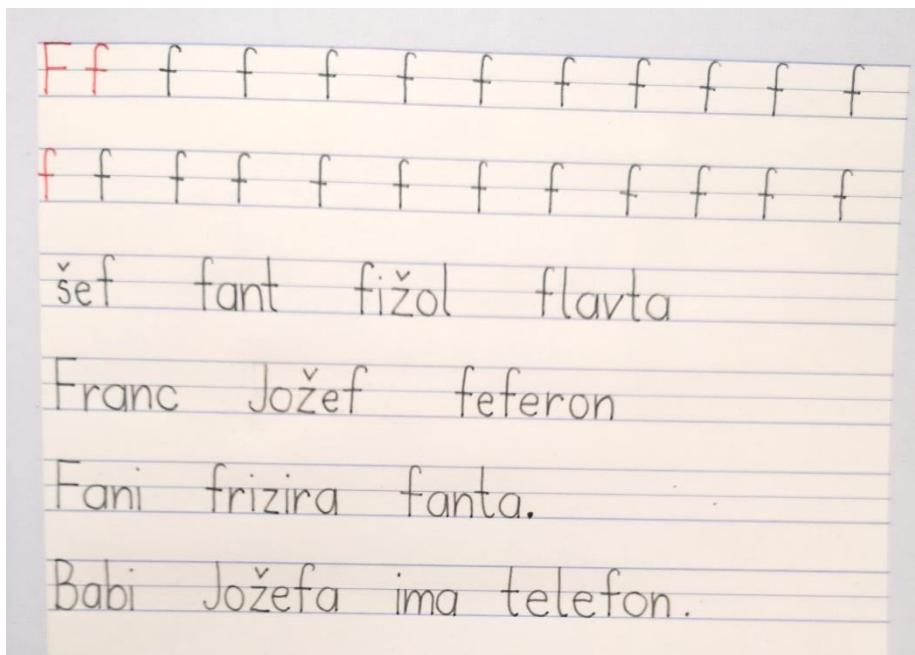 F f f f f f f f f f f f
f f f f f f f f f f f f
šef fant fižol flavta
Franc Jožef feferon
Fani frizira fanta.
Babi Jožefa ima telefon.